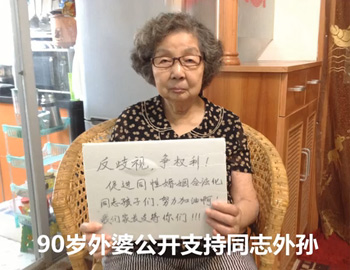 反歧视，争权利！
促进同性婚姻合法化
同志孩子们，努力加油啊
我们永远支持你们！！！
90岁外婆公开支持同志外孙